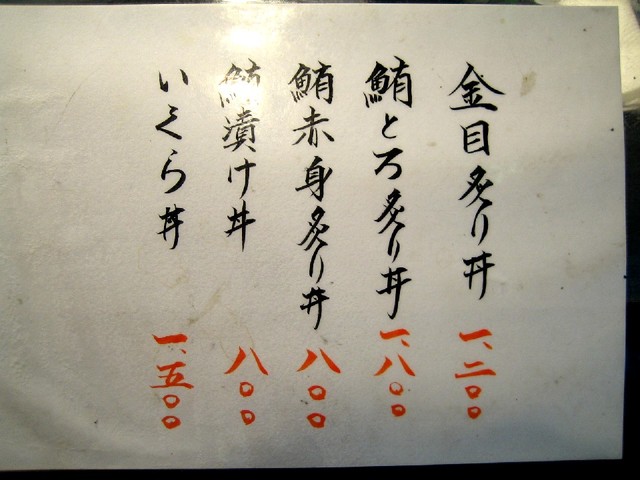 金目炙り丼 一、二〇〇
鮪とろ炙り丼 一、八〇〇
鮪赤身炙り丼 八〇〇
鮪漬け丼 八〇〇
いくら丼 一、五〇〇